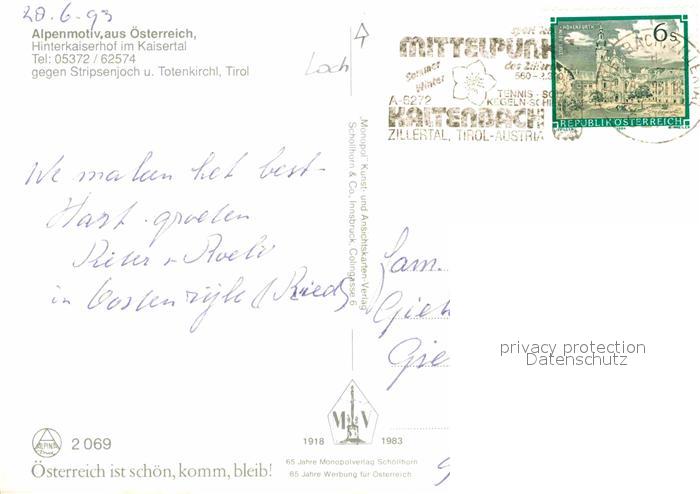 20.6.93
Alpenmotiv, aus Österreich,
Hinterkaiserhof im Kaisertal
Tel: 05372 / 62574
gegen Stripsenjoch u. Totenkirchl, Tirol
Loch
MITTELPUNK
des Zillert
Sommer
Winter
560-2.3
TENNIS - SC
A-6272
KEGELN-SCHI
KALTENBACH
ZILLERTAL, TIROL-AUSTRIA
HOHENFURTH
6s
REPUBLIK ÖSTERREICH
„Monopol" Kunst- und Ansichtskarten-Verlag
Schöllhorn & Co, Innsbruck, Colingasse 6
We maken het best
Hart. groeten
in Oostenrijk (Ried)
Fam.
Gie
privacy protection
Datenschutz
ALPINA
2 069
Österreich ist schön, komm, bleib!
M V
1918 1983
65 Jahre Monopolverlag Schöllhorn
65 Jahre Werbung für Österreich